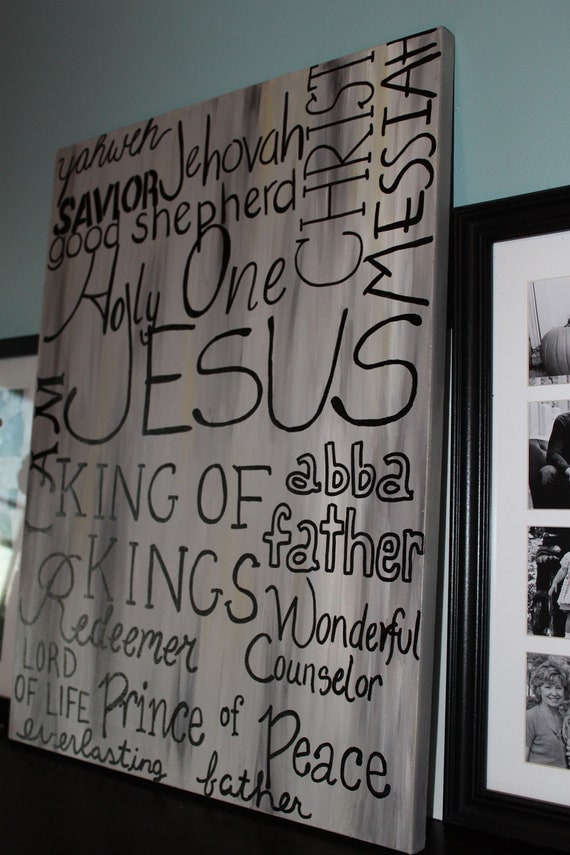 yahweh
Jehovah
SAVIOR
good shepherd
CHRIST
MESSIAH
Holy One
JESUS
I AM
KING OF
KINGS
abba
father
Redeemer
Wonderful
Counselor
LORD
OF LIFE
Prince of
Peace
everlasting
father